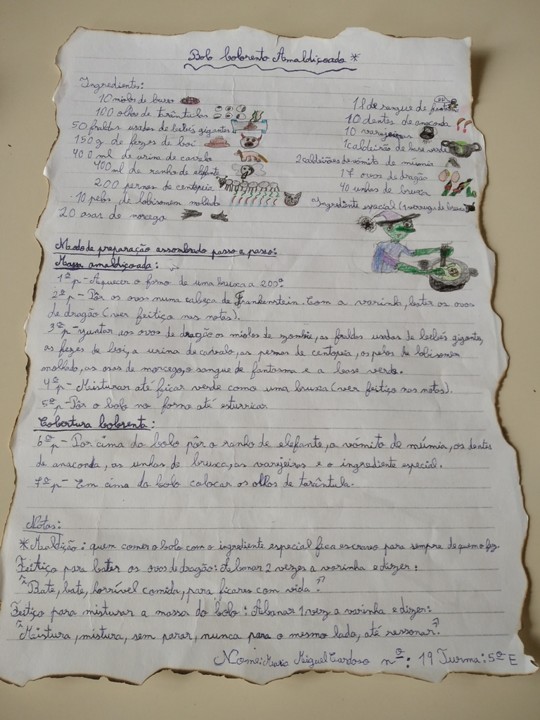 Bolo bolorento Amaldiçoado *
Ingredientes:
10 miolos de
100 olhos de tarântulas
50 fraldas usadas de bebés gigantes
150 g de fezes de boi
400 ml de urina de cavalo
400 ml de ranho de elefante
200 pernas de centopeia
10 pelos de lobisomem molhado
20 asas de morcego
1 l de sangue de
10 dentes de anaconda
10 varejeiras
1 caldeirão de
2 caldeirões de vómito de múmia
17 ovos de dragão
40 unhas de bruxa
Ingrediente especial (1
Modo de preparação assombrado passo a passo:
Massa amaldiçoada:
1º p - Aquecer o forno de uma bruxa a 200º.
2º p - Pôr os ovos numa cabeça de Frankenstein. Com a varinha, bater os ovos
de dragão (ver feitiço nas notas).
3º p - Juntar aos ovos de dragão os miolos de zombie, as fraldas usadas de bebés gigantes,
as fezes de boi, a urina de cavalo, as pernas de centopeia, os pelos de lobisomem
molhado, as asas de morcego, o sangue de fantasma e a verde.
4º p - Misturar até ficar verde como uma bruxa (ver feitiço nas notas).
5º p - Pôr o bolo no forno até esturricar
Cobertura bolorenta:
6º p - Por cima do bolo pôr o ranho de elefante, o vómito de múmia, os dentes
de anaconda, as unhas de bruxa, as varejeiras e o ingrediente especial.
7º p - Em cima do bolo colocar os olhos de tarântula.
Notas:
* Maldição: quem comer o bolo com o ingrediente especial fica escravo para sempre de quem o fez.
Feitiço para bater os ovos de dragão: Abanar 2 vezes a varinha e dizer:
"Bate, bate, horrível comida, para ficares com vida."
Feitiço para misturar a massa do bolo: Abanar 1 vez a varinha e dizer:
"Mistura, mistura, sem parar, nunca para o mesmo lado, até ressonar."
Nome: Miguel Cardoso nº: 19 Turma: 5º E